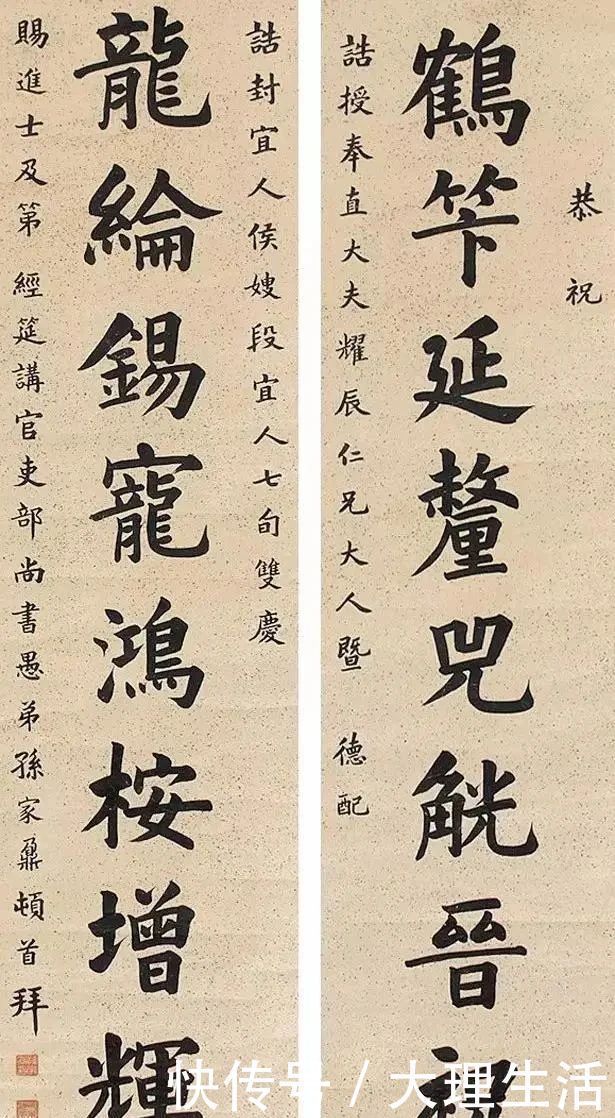 恭祝
鶴笇延釐兕觥晉祝
誥授奉直大夫耀辰仁兄大人暨 德配
誥封宜人侯嫂段宜人七旬雙慶
龍綸錫寵鴻桉增輝
賜進士及第 經筵講官吏部尚書愚弟孫家鼐頓首拜
快传号 / 大理生活